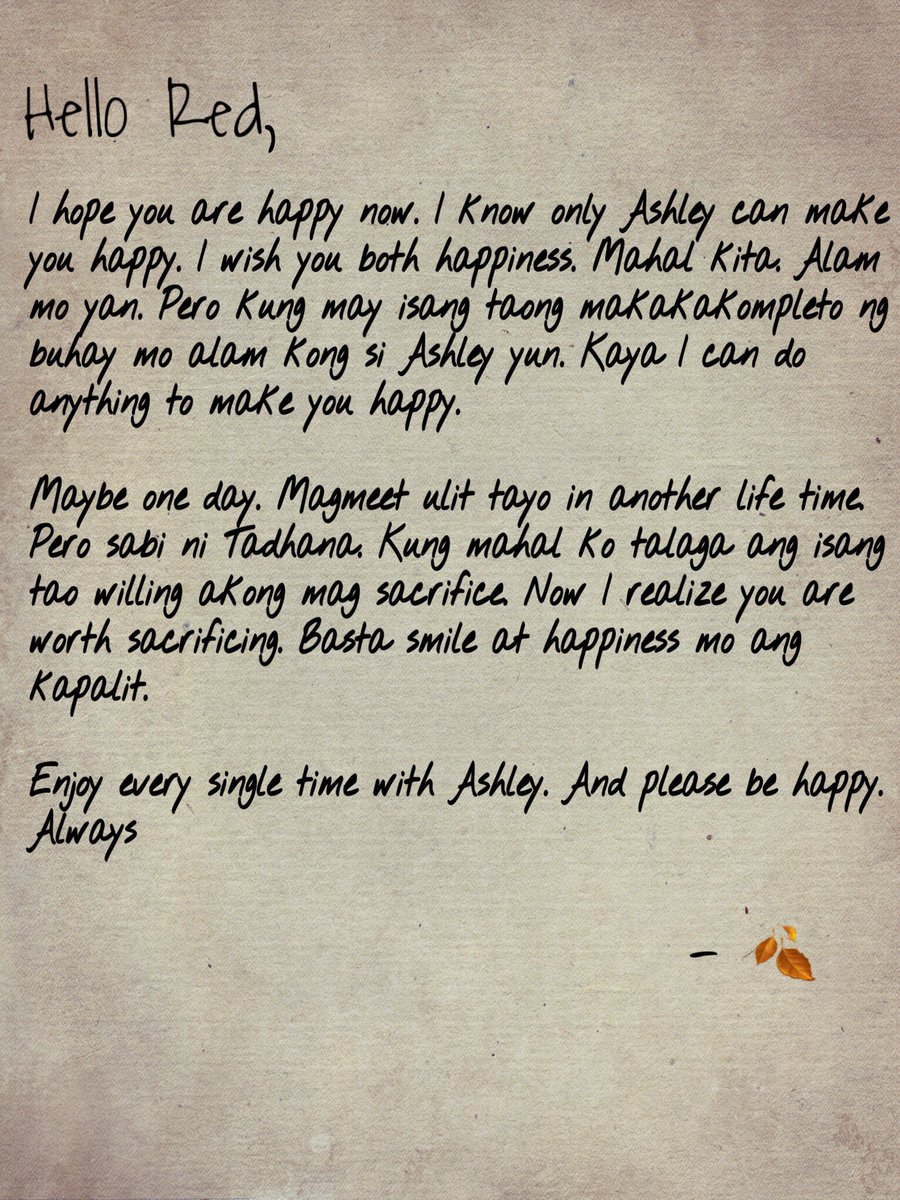 Hello Red,
I hope you are happy now. I know only Ashley can make
you happy. I wish you both happiness. Mahal kita. Alam
mo yan. Pero kung may isang taong makakakompleto ng
buhay mo alam kong si Ashley yun. Kaya I can do
anything to make you happy.
Maybe one day. Magmeet ulit tayo in another life time.
Pero sabi ni Tadhana. Kung mahal ko talaga ang isang
tao willing akong mag sacrifice. Now I realize you are
worth sacrificing. Basta smile at happiness mo ang
kapalit.
Enjoy every single time with Ashley. And please be happy.
Always
- 🍂